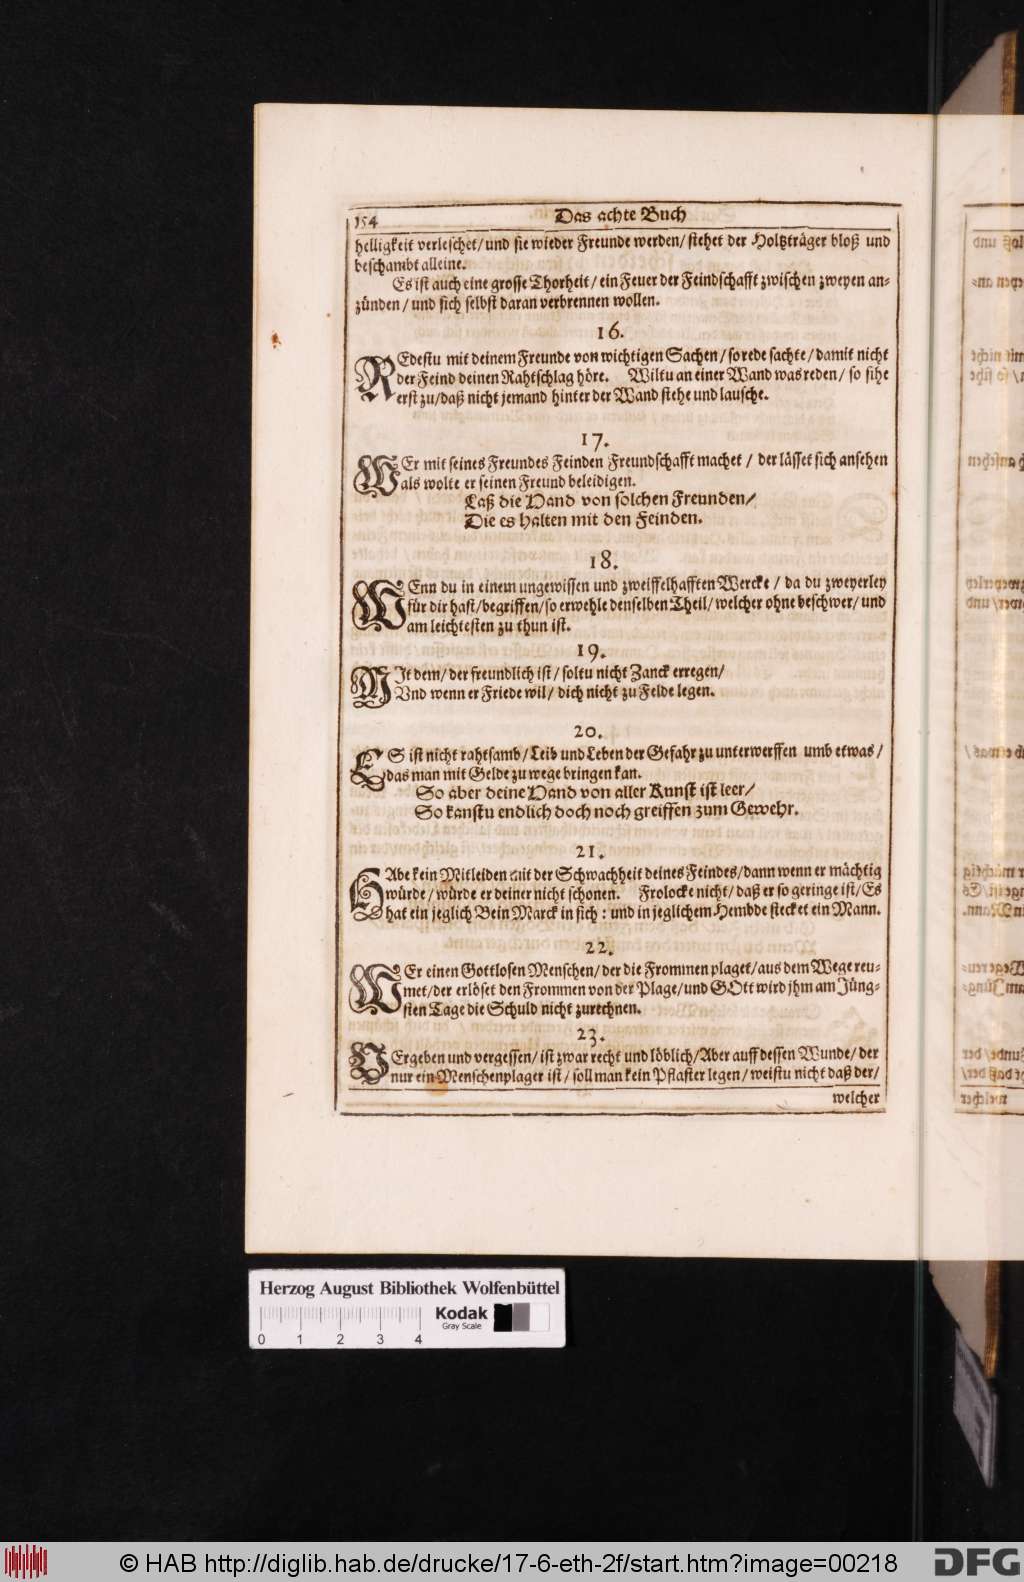 154
Das achte Buch
helligkeit verleschet/ und sie wieder Freunde werden/ stehet der Holtzträger bloß und
beschambt alleine.
Es ist auch eine grosse Thorheit/ ein Feuer der Feindschafft zwischen zweyen an-
zünden/ und sich selbst daran verbrennen wollen.
16.
REdestu mit deinem Freunde von wichtigen Sachen/ so rede sachte/ damit nicht
der Feind deinen Rahtschlag höre. Wiltu an einer Wand was reden/ so sihe
erst zu/ daß nicht jemand hinter der Wand stehe und lausche.
17.
WEr mit seines Freundes Feinden Freundschafft machet/ der lässet sich ansehen
als wolte er seinen Freund beleidigen.
Laß die Hand von solchen Freunden/
Die es halten mit den Feinden.
18.
WEnn du in einem ungewissen und zweiffelhafften Wercke/ da du zweyerley
für dir hast/ begriffen/ so erwehle denselben Theil/ welcher ohne beschwer/ und
am leichtesten zu thun ist.
19.
MIt dem/ der freundlich ist/ soltu nicht Zanck erregen/
Und wenn er Friede wil/ dich nicht zu Felde legen.
20.
ES ist nicht rahtsamb/ Leib und Leben der Gefahr zu unterwerffen umb etwas/
das man mit Gelde zu wege bringen kan.
So aber deine Hand von aller Kunst ist leer/
So kanstu endlich doch noch greiffen zum Gewehr.
21.
HAbe kein Mitleiden mit der Schwachheit deines Feindes/ dann wenn er mächtig
würde/ würde er deiner nicht schonen. Frolocke nicht/ daß er so geringe ist/ Es
hat ein jeglich Bein Marck in sich: und in jeglichem Hembde stecket ein Mann.
22.
WEr einen Gottlosen Menschen/ der die Frommen plaget/ aus dem Wege reu-
met/ der erlöset den Frommen von der Plage/ und GOtt wird jhm am Jüng-
sten Tage die Schuld nicht zurechnen.
23.
VErgeben und vergessen/ ist zwar recht und löblich/ Aber auff dessen Wunde/ der
nur ein Menschenplager ist/ soll man kein Pflaster legen/ weistu nicht daß der/
welcher
Herzog August Bibliothek Wolfenbüttel
Kodak
Gray Scale
0 1 2 3 4
© HAB http://diglib.hab.de/drucke/17-6-eth-2f/start.htm?image=00218
DFG